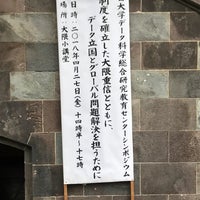 大学データ科学総合研究教育センターシンポジウム
制度を確立した大隈重信とともに、
データ立国とグローバル問題解決を担うために
日時：二〇一八年四月二七日（金）十四時半～十七時
場所：大隈小講堂